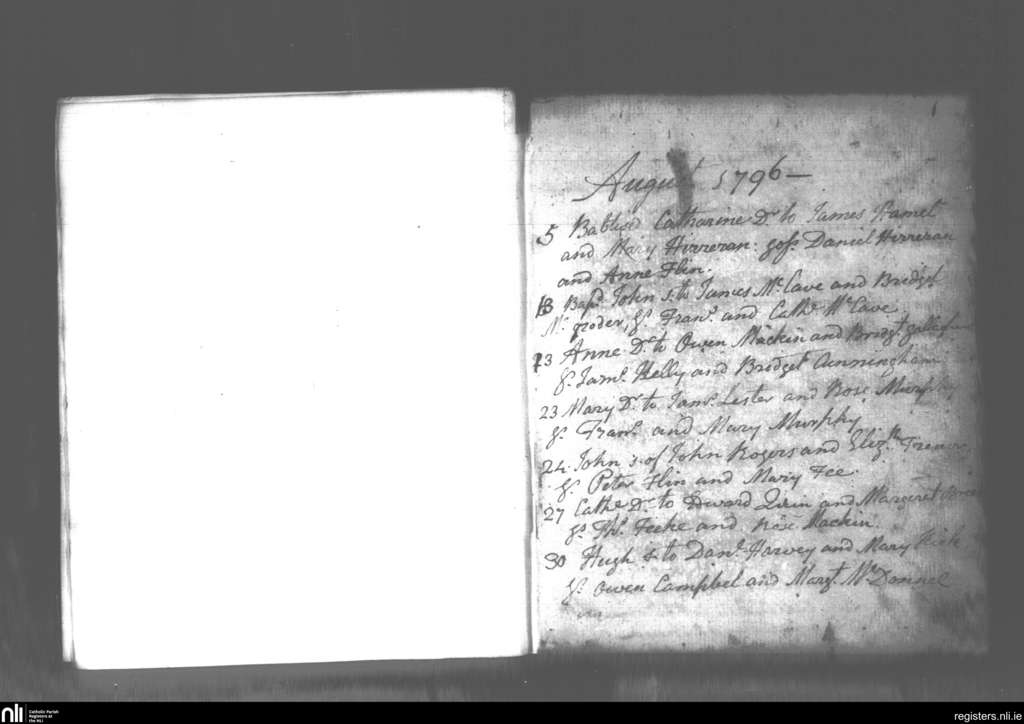 August 1796 —
5 Baptised Catharine Dr. to James Hamel
and Mary Hirreran: gofs. Daniel Hirreran
and Anne Flin.
13 Bapd. John s. to James McCave and Bridget
Mc. groder, gs. Frans. and Cathe. McCave
23 Anne Dr. to Owen Mackin and Bridgt.
gs. Jams. Kelly and Bridget Cunningham
23 Mary Dr. to Jams. Lester and Rose Murphy
gs. Frans. and Mary Murphy
24 John s. of John Rogers and Elizth.
gs. Peter Flin and Mary Fee
27 Cathe. Dr. to Edward Quin and Margaret
gs. Ths. Feeke and Rose Mackin.
30 Hugh s. to Danl. Harvey and Mary
gs. Owen Campbel and Margt. McDonnel
nli
Catholic Parish
Registers at
the NLI
registers.nli.ie